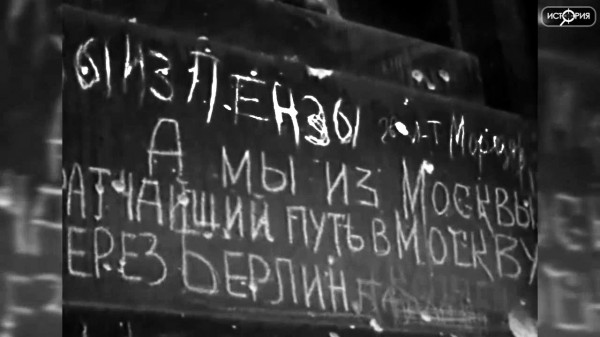 ИСТОРИЯ
Ы ИЗ ПЕНЗЫ Л-Т
А МЫ ИЗ МОСКВЫ
АТЧАЙЩИЙ ПУТЬ В МОСКВУ
ЕРЕЗ БЕРЛИН